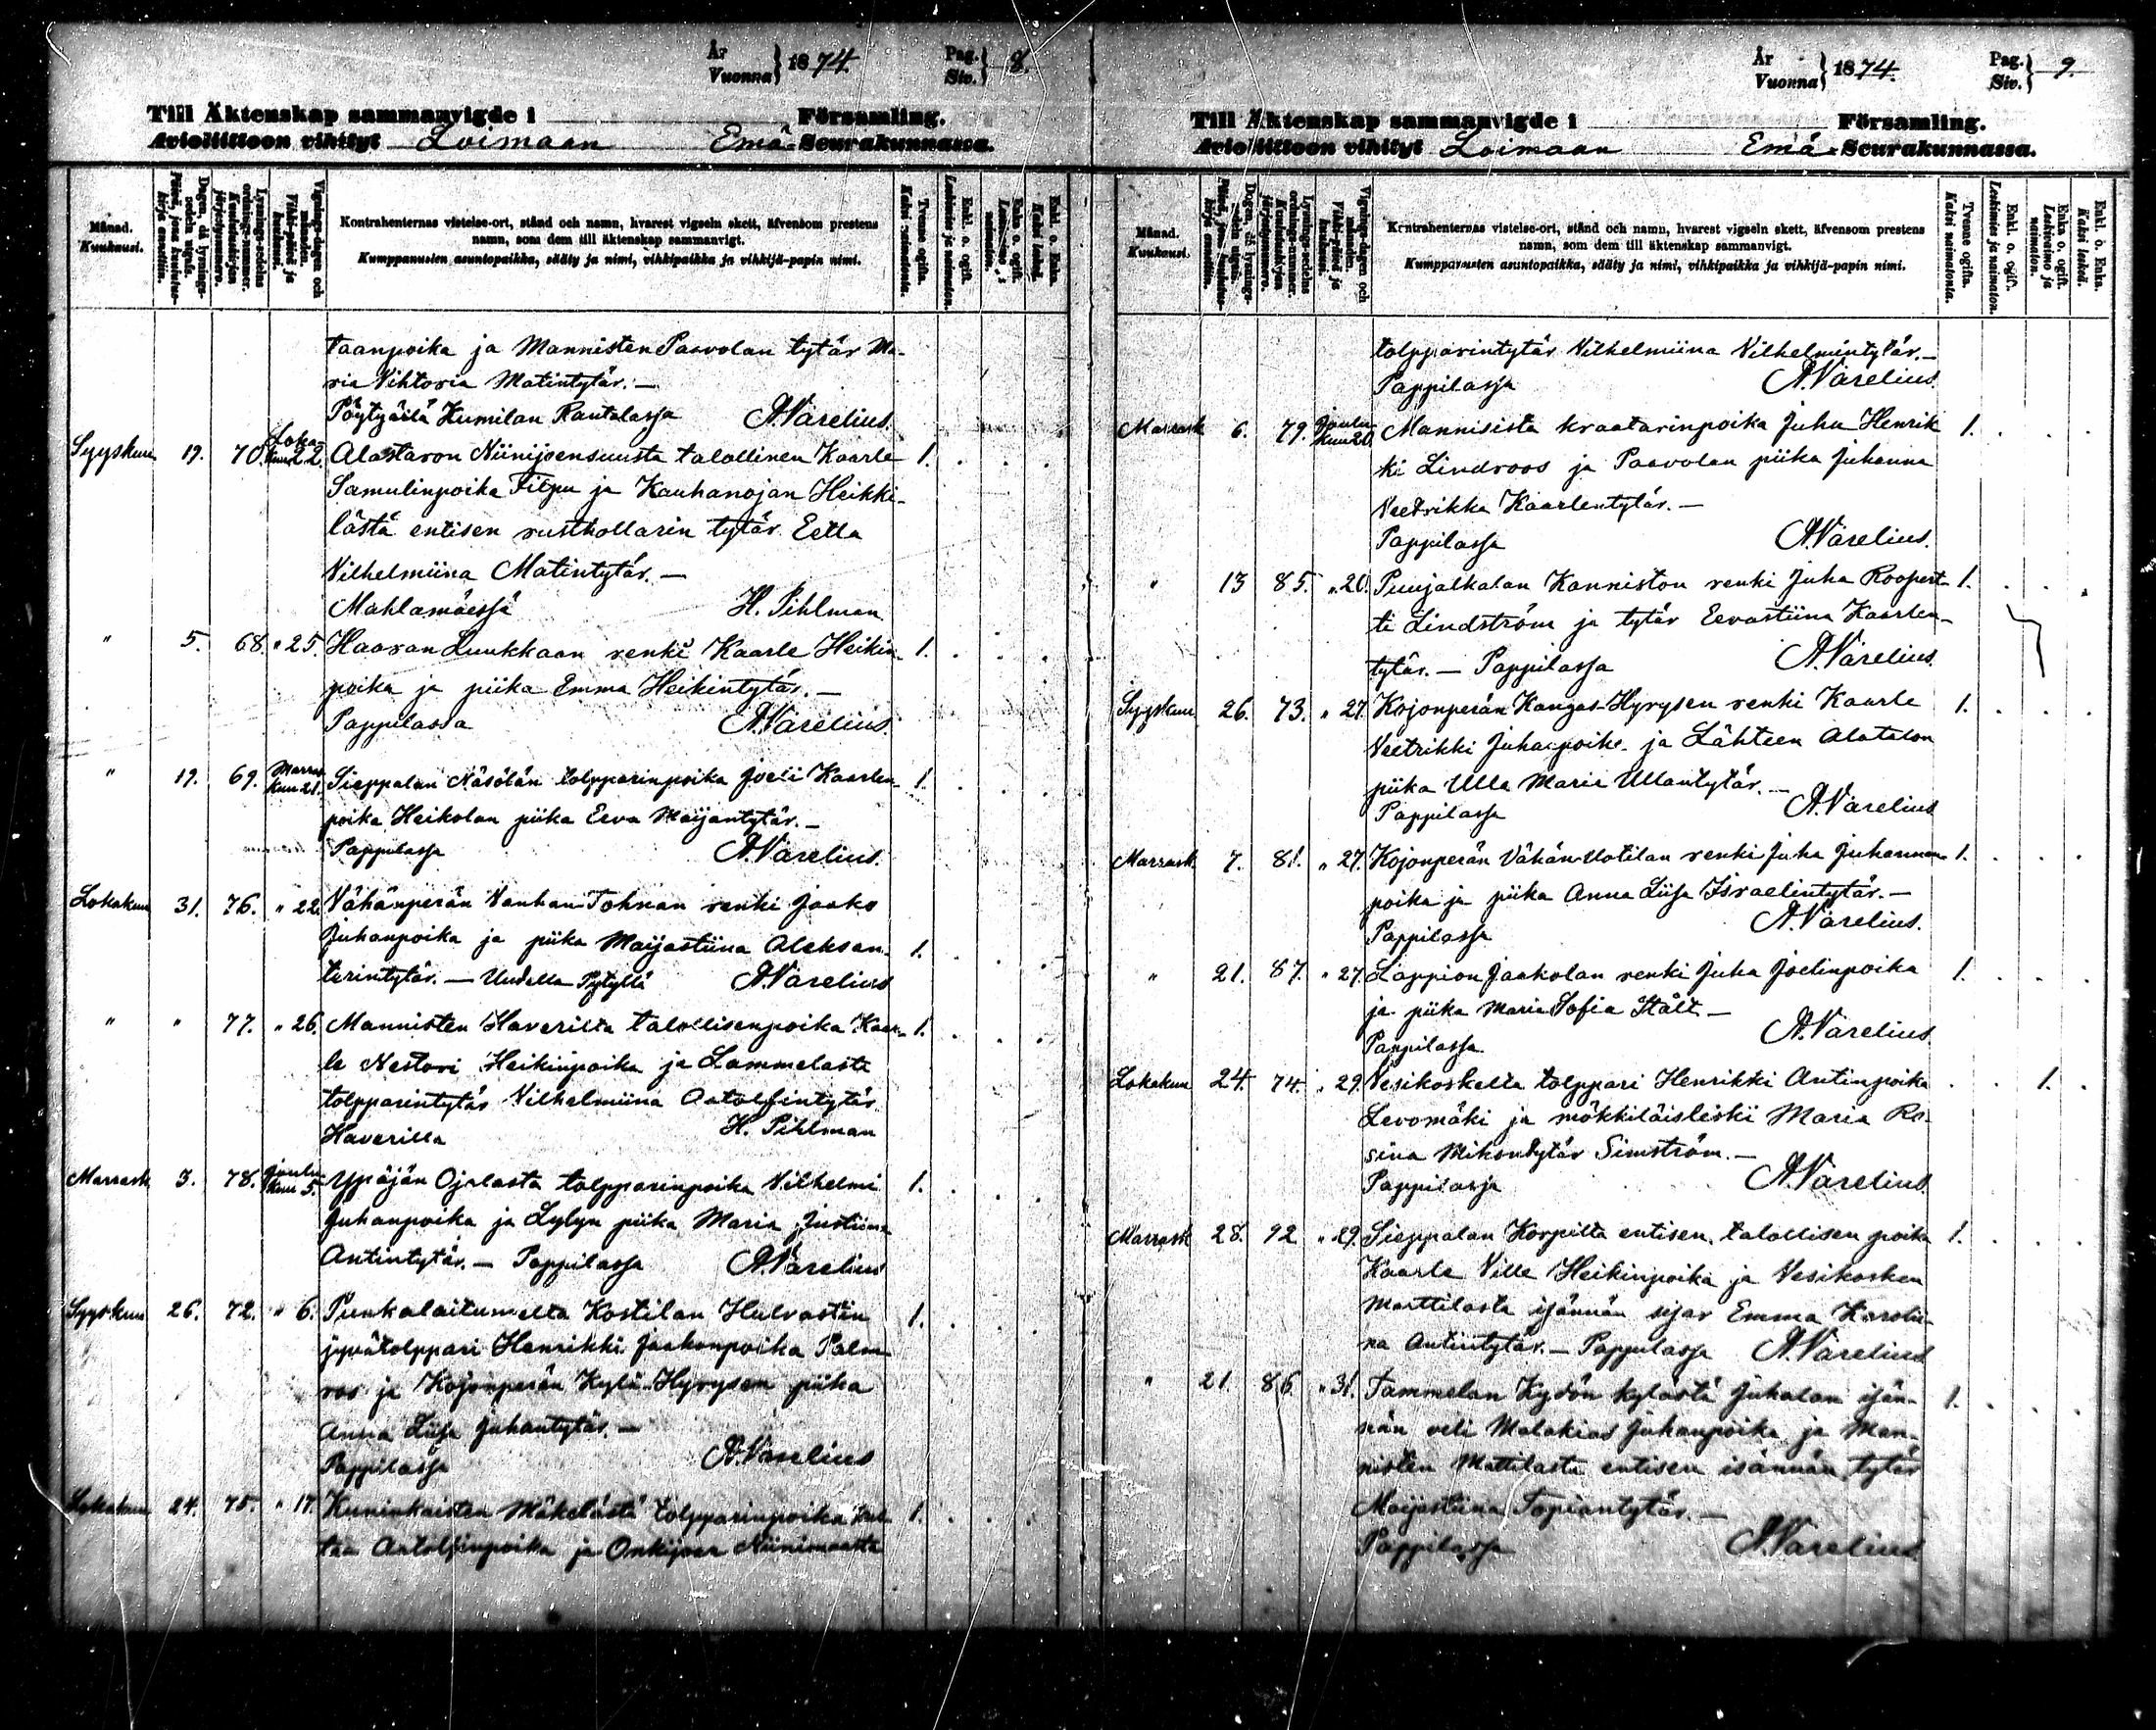 År
Vuonna } 1874.
Pag.
Siv. } 8.
Till Äktenskap sammanvigde i Församling.
Avioliittoon vihityt Loimaan Emä-Seurakunnassa.
Månad.
Kuukausi.
Dagen, då lysningssedeln utgafs.
Lysnings-sedelns ordnings-nummer.
Vignings-dagen och månaden.
Vihki-päivä ja kuukausi.
Kontrahenternas vistelse-ort, stånd och namn, hvarest vigseln skett, äfvensom prestens
namn, som dem till äktenskap sammanvigt.
Kumppanusten asuntopaikka, sääty ja nimi, vihkipaikka ja vihkijä-papin nimi.
Tvenne ogifta.
Kaksi naimatonta.
Enkl. o. ogift.
Leskimies ja naimaton.
Enka o. ogift.
Enkl. o. Enka.
Kaksi leskeä.
taanpoika ja Mannisten Paavolan tytär Ma-
ria Vihtoria Matintytär. —
Pöytyällä Kumilan Rantalassa A. Varelius.
Syyskuu 19. 70. Loka-
kuu 22. Alastaron Niinijoensuusta talollinen Kaarle 1.
Samulinpoika Filpu ja Kauhanojan Heikki-
lästä entisen rusthollarin tytär Eetla
Vilhelmiina Matintytär. —
Mahlamäessä H. Pihlman
" 5. 68. " 25. Haaran Luukkaan renki Kaarle Heikin- 1.
poika ja piika Emma Heikintytär. —
Pappilassa A. Varelius.
" 19. 69. Marras
kuu 21. Sieppalan Näsölän tolpparinpoika Joeli Kaarlen- 1.
poika Heikolan piika Eeva Maijantytär. —
Pappilassa A. Varelius.
Lokakuu 31. 76. " 22. Vähänperän Vanhan Tohnan renki Jaako
Juhanpoika ja piika Maijastiina Aleksan- 1.
terintytär. — Uudella Pytyllä A. Varelius
" " 77. " 26. Mannisten Haverilta talollisenpoika Kaar- 1.
le Nestori Heikinpoika ja Lammelasta
tolpparintytär Vilhelmiina Aatolfintytär
Haverilla H. Pihlman
Marrask. 3. 78. Joulu
kuu 5. Ypäjän Ojalasta tolpparinpoika Vilhelmi 1.
Juhanpoika ja Lylyn piika Maria Justiina
Antintytär. — Pappilassa A. Varelius
Syyskuu 26. 72. " 6. Punkalaitumelta Kostilan Hulvastin 1.
jyvätolppari Henrikki Jaakonpoika Palm-
ros ja Kojonperän Kylä-Hyrysen piika
Anna Liisa Juhantytär. —
Pappilassa A. Varelius
Lokakuu 24. 75. " 17. Kuninkaisten Mäkelästä tolpparinpoika 1.
Aatolfinpoika ja Onkijoen Niinimaasta
År
Vuonna } 1874.
Pag.
Siv. } 9.
Till Äktenskap sammanvigde i Församling.
Avioliittoon vihityt Loimaan Emä-Seurakunnassa.
Månad.
Kuukausi.
Dagen, då lysningssedeln utgafs.
Lysnings-sedelns ordnings-nummer.
Vignings-dagen och månaden.
Vihki-päivä ja kuukausi.
Kontrahenternas vistelse-ort, stånd och namn, hvarest vigseln skett, äfvensom prestens
namn, som dem till äktenskap sammanvigt.
Kumppanusten asuntopaikka, sääty ja nimi, vihkipaikka ja vihkijä-papin nimi.
Tvenne ogifta.
Kaksi naimatonta.
Enkl. o. ogift.
Leskimies ja naimaton.
Enka o. ogift.
Leskivaimo ja naimaton.
Enkl. o. Enka.
Kaksi leskeä.
tolpparintytär Vilhelmiina Vilhelmintytär. —
Pappilassa A. Varelius.
Marrask 6. 79. Joulu
kuu 26. Mannisista kraatarinpoika Juha Henrik 1.
ki Lindroos ja Paavolan piika Juhanna
Veetrikka Kaarlentytär. —
Pappilassa A. Varelius.
" 13 85. " 26. Puujalkalan Kanniston renki Juha Roopert- 1.
ti Lindström ja tytär Eevastiina Kaarlen-
tytär. — Pappilassa A. Varelius
Syyskuu 26. 73. " 27. Kojonperän Kangas-Hyrysen renki Kaarle 1.
Veetrikki Juhanpoika ja Lähteen Alatalon
piika Ulla Maria Ullantytär. —
Pappilassa A. Varelius
Marrask. 7. 81. " 27. Kojonperän Vähän-Uotilan renki Juha Juhannan- 1.
poika ja piika Anna Liisa Israelintytär. —
Pappilassa A. Varelius.
" 21. 87. " 27. Lappion Jaakolan renki Juha Joelinpoika 1.
ja piika Maria Sofia Stålt —
Pappilassa A. Varelius
Lokakuu 24. 74. " 29. Vesikoskella tolppari Henrikki Antinpoika 1.
Levomäki ja mökkiläisleski Maria Ro-
sina Mikontytär Simström. —
Pappilassa A. Varelius
Marrask 28. 92 " 29. Sieppalan Korpilta entisen talollisen poika 1.
Kaarle Ville Heikinpoika ja Vesikosken
Marttilasta isännän sisar Emma Karolii-
na Antintytär. — Pappilassa A. Varelius
" 21. 86. " 31. Tammelan Kydön kylästä Jukalan isän- 1.
nän veli Malakias Juhanpoika ja Man-
nisten Mattilasta entisen isännän tytär
Maijastiina Topiantytär. —
Pappilassa A. Varelius